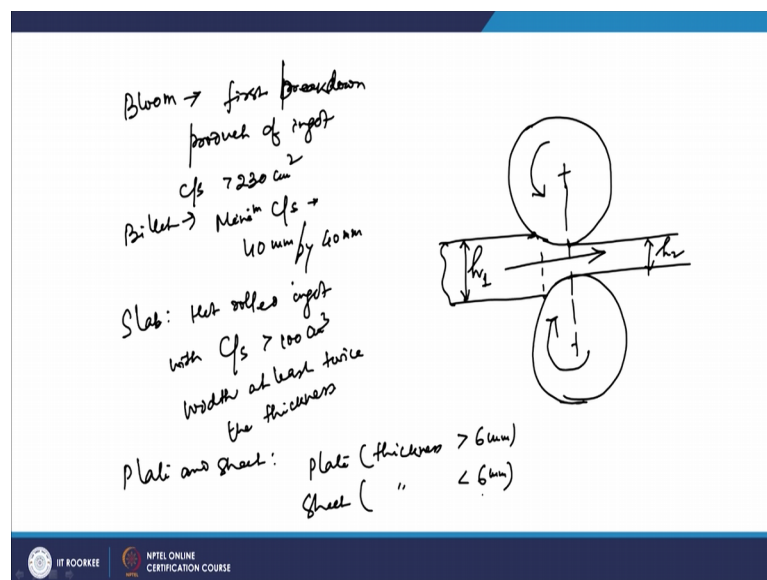 Bloom → first breakdown
product of ingot
C/s > 230 cm²
Billet → Minimᵐ C/s →
40 mm by 40 mm
Slab: Hot rolled ingot
with C/s > 100 cm³
width at least twice
the thickness
Plate and sheet: Plate (thickness > 6mm)
Sheet ( " < 6mm)
h₁
h₂
IIT ROORKEE
NPTEL ONLINE
CERTIFICATION COURSE